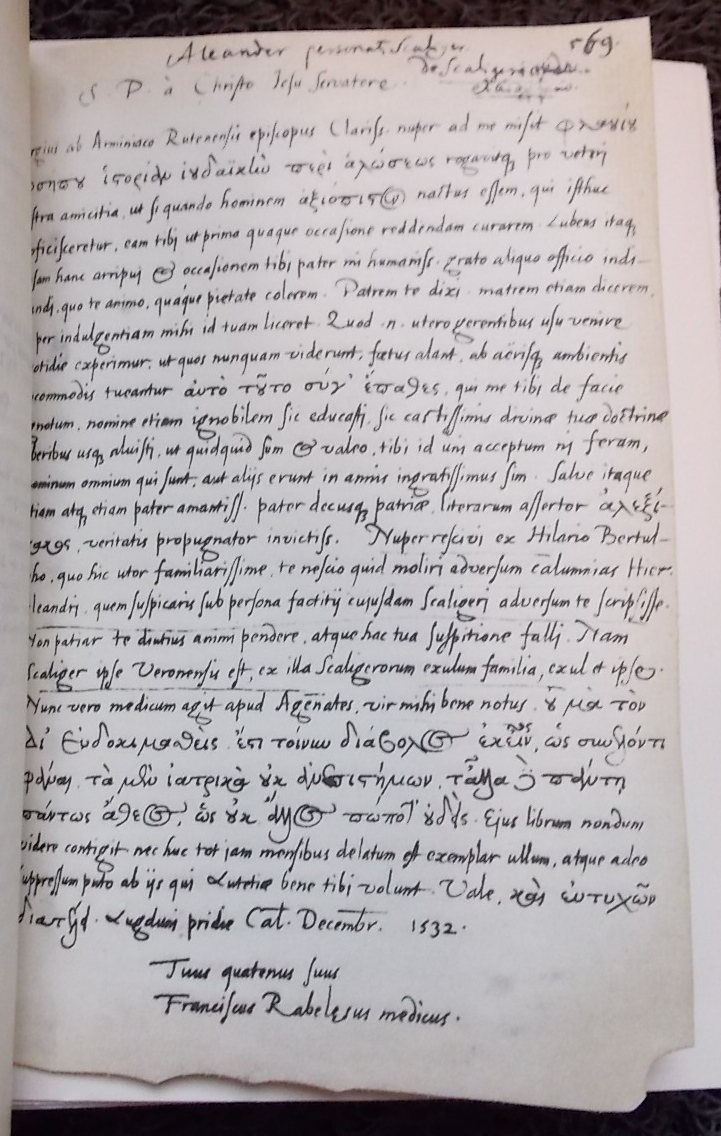 Aleander personati Scaliger 569.
de Scaligero
S. P. à Christo Jesu Servatore.
rgius ab Arminiaco Rutenensis episcopus Clariss. nuper ad me misit φλαουίου
ἱστορίαν ἰουδαϊκὴν περὶ ἁλώσεως rogavitq̨ pro veteri
stra amicitia, ut si quando hominem ἀξιόπιστον nactus essem, qui isthuc
oficisceretur, eam tibi ut prima quaque occasione reddendam curarem. Lubens itaq̨
sam hanc arripui & occasionem tibi pater mi humaniss. grato aliquo officio indi-
andi, quo te animo, quáque pietate colerem. Patrem te dixi. matrem etiam dicerem,
per indulgentiam mihi id tuam liceret. Quod .n. utero gerentibus usu venire
otidie experimur, ut quos nunquam viderunt, fœtus alant, ab aërisq̨ ambientis
commodis tueantur αὐτὸ τοῦτο σύγ' ἔπαθες, qui me tibi de facie
enotum, nomine etiam ignobilem sic educasti, sic castissimis divinæ tuæ doctrinæ
beribus usq̨ aluisti, ut quidquid sum & valeo, tibi id uni acceptum ni feram,
ominum omnium qui sunt, aut alijs erunt in annis ingratissimus sim. Salve itaque
tiam atq̨ etiam pater amantiss. pater decusq̨ patriæ, literarum assertor ἀλεξί-
κακος, veritatis propugnator invictiss. Nuper rescivi ex Hilario Bertul-
ho, quo hic utor familiarissime, te nescio quid moliri adversum calumnias Hier.
leandri, quem suspicaris sub persona factitij cujusdam Scaligeri adversum te scripsisse.
Non patiar te diutius animi pendere, atque hac tua suspitione falli. Nam
Scaliger ipse Veronensis est, ex illa Scaligerorum exulum familia, exul et ipse.
Nunc vero medicum agit apud Agenates, vir mihi bene notus. οὐ μὰ τὸν
δί' εὐδοκιμαθεὶς. ἔστι τοίνυν διάβολος ἐκεῖνος, ὡς συνελόντι
φάναι, τὰ μὲν ἰατρικὰ οὐκ ἀνεπιστήμων, τἆλλα δὲ πάντη
πάντως ἄθεος, ὡς οὐκ ἄλλος πώποτ' οὐδείς. Ejus librum nondum
videre contigit nec huc tot jam mensibus delatum est exemplar ullum, atque adeo
suppressum puto ab ijs qui Lutetiæ bene tibi volunt. Vale, καὶ εὐτυχῶν
διατέλει. Lugduni pridie Cal. Decembr. 1532.
Tuus quatenus suus
Franciscus Rabelęsus medicus.